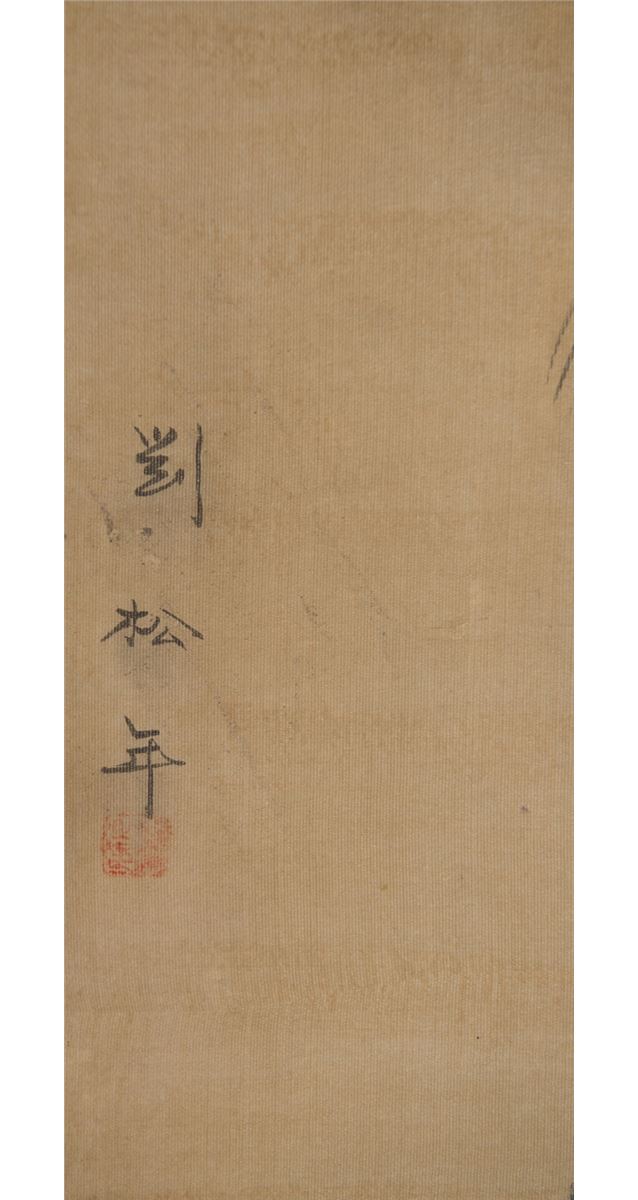 劉松年